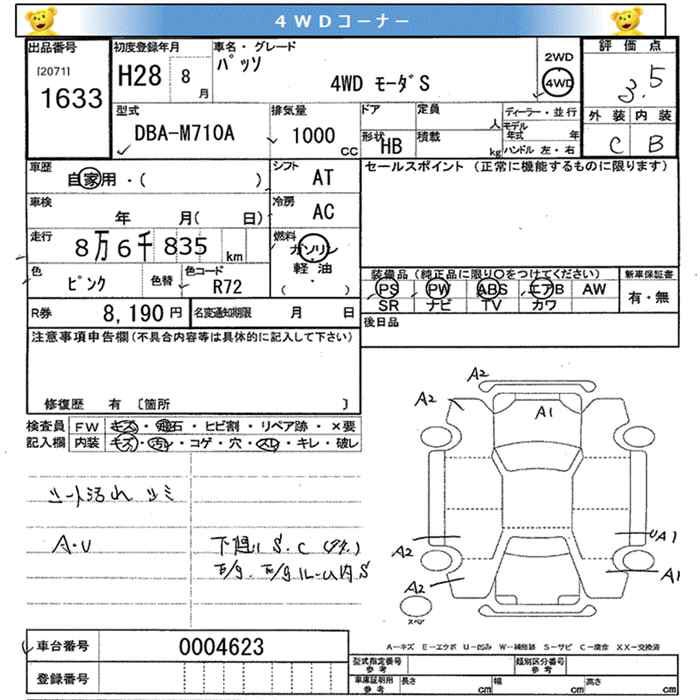 4WDコーナー
出品番号 初度登録年月 車名・グレード 評価点
[2071] パッソ 2WD
1633 H28 8 月 4WD モーダS 4WD 3.5
型式 排気量 ドア 定員 ディーラー・並行 外装 内装
DBA-M710A 1000 CC 人 モデル年式 年 C B
形状 HB 積載 kg ハンドル 左・右
車歴 自家用・( ) シフト AT セールスポイント (正常に機能するものに限ります)
車検 年 月( 日) 冷房 AC
走行 8万6千835 km 燃料 ガソリン・軽油 ( )
色 ピンク 色替 色コード R72
装備品(純正品に限り○をつけてください) 新車保証書
PS PW ABS エアB AW 有・無
SR ナビ TV カワ
R券 8,190円 名変通知期限 月 日 後日品
注意事項申告欄(不具合内容等は具体的に記入して下さい)
修復歴 有 〔箇所 〕
検査員 FW キズ・飛石・ヒビ割・リペア跡・×要
記入欄 内装 キズ・汚レ・コゲ・穴・スレ・キレ・破レ
シート汚れ シミ
A・U 下廻り S.C
A2
A2 A1
A2 UA1
A2 A1
スペア
A-キズ E-エクボ U-凹み W-補修跡 S-サビ C-腐食 XX-交換済
車台番号 0004623
登録番号
型式指定番号 参考 類別区分番号 参考
車庫証明用 参考 長さ cm 幅 cm 高さ cm